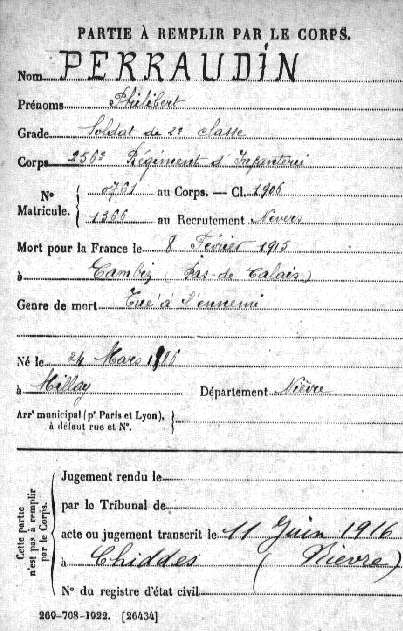 PARTIE À REMPLIR PAR LE CORPS.
Nom PERRAUDIN
Prénoms Philibert
Grade Soldat de 2e classe
Corps 256e Régiment d'Infanterie
N° Matricule. { 0701 au Corps. — Cl. 1906
1366 au Recrutement Nevers
Mort pour la France le 8 Février 1915
à Cambiz (Pas-de-Calais)
Genre de mort Tué à l'ennemi
Né le 24 Mars
à Millay Département Nièvre
Arr¹ municipal (p¹ Paris et Lyon), à défaut rue et N°. }
Cette partie n'est pas à remplir par le Corps.
Jugement rendu le
par le Tribunal de
acte ou jugement transcrit le 11 Juin 1916
à Chiddes (Nièvre)
N° du registre d'état civil
269-708-1922. [26434]